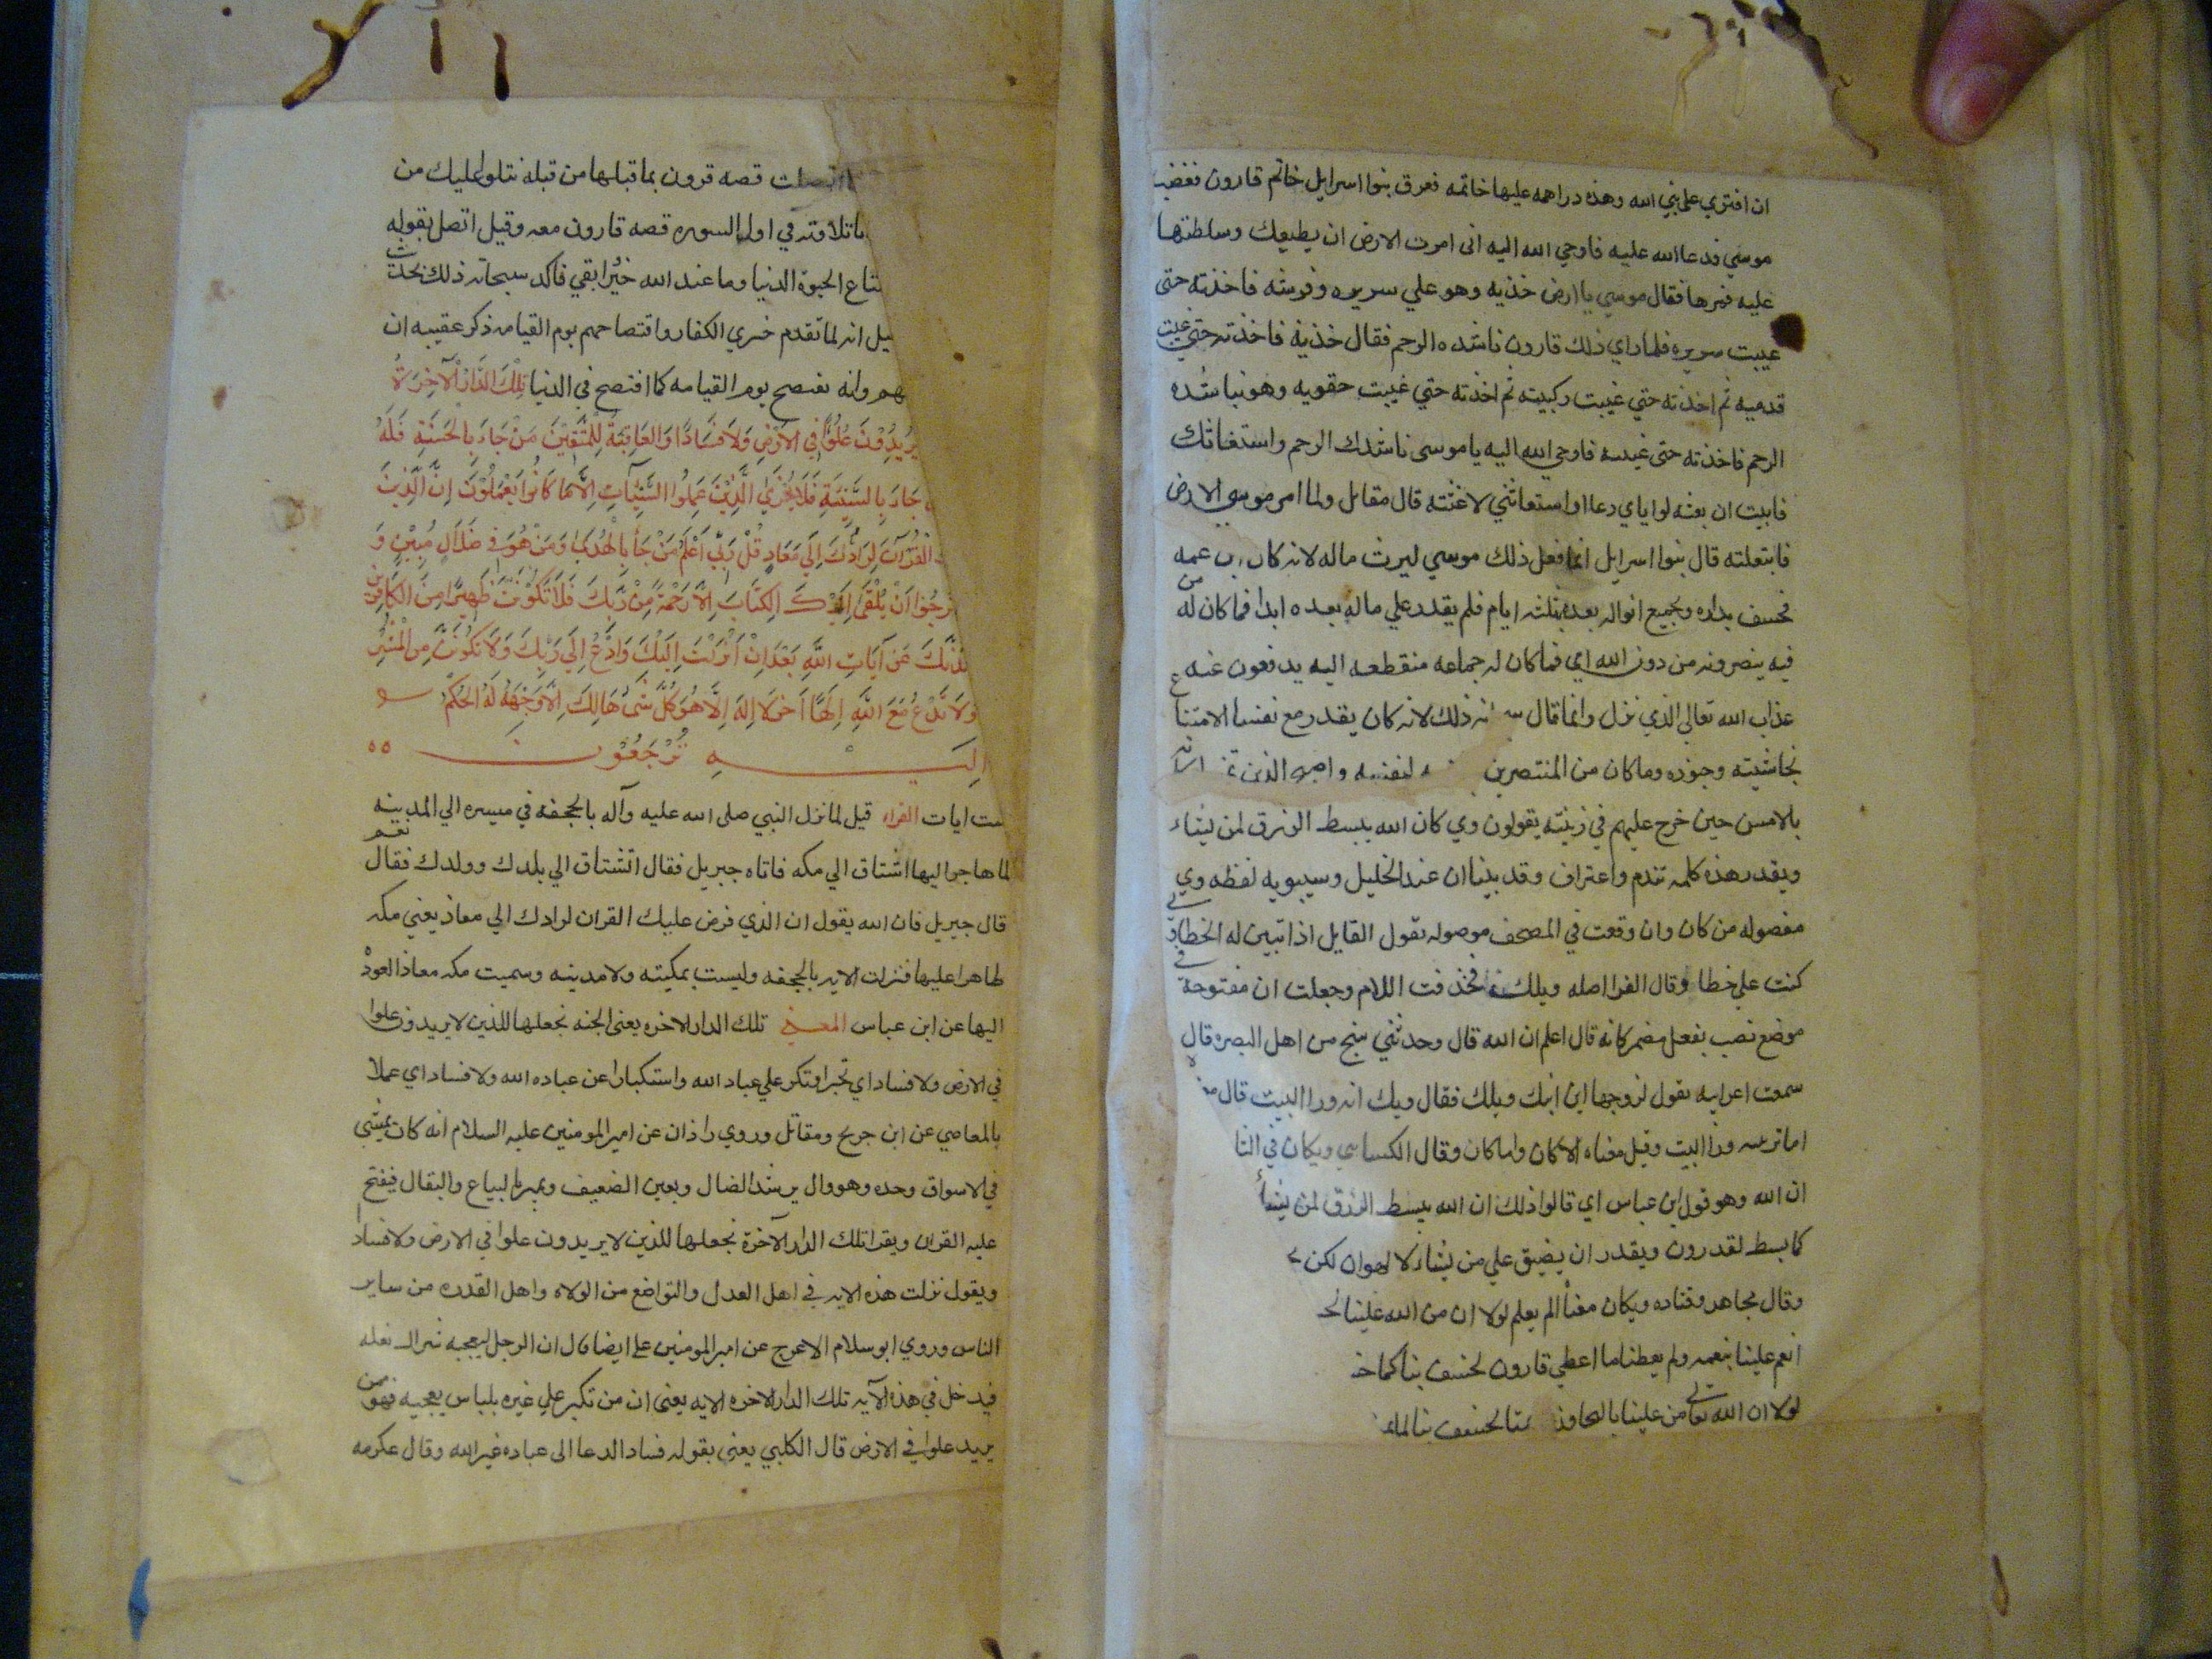 ان افتري علي نبي الله وهذه دراهمه عليها خاتمه فعرق بنوا اسرايل خاتم قارون فغضب
موسي فدعا الله عليه فاوحي الله اليه اني امرت الارض ان يطيعك وسلطتها
عليه فمرها فقال موسي يا ارض خذيه وهو علي سريره وفرشه فاخذته حتى
غيبت سريره فلما راي ذلك قارون ناشده الرحم فقال خذيه فاخذته حتي غيبت
قدميه ثم اخذته حتي غيبت ركبتيه ثم اخذته حتي غيبت حقويه وهو يناشده
الرحم فاخذته حتى غيبته فاوحي الله اليه يا موسى ناشدك الرحم واستغاثك
فابيت ان بغثه لو اياي دعا او استغاثني لاغثته قال مقاتل ولما امر موسي الارض
فابتعلته قال بنوا اسرايل انما فعل ذلك موسي ليرث ماله لانه كان بن عمه
فخسف بداره وبجميع امواله بعده بثلثه ايام فلم يقدر علي ماله بعده ابدا فما كان له من
فيه ينصرونه من دون الله اي فما كان له جماعه منقطعه اليه يدفعون عنه
عذاب الله تعالي الذي نزل وانما قال ذلك لانه كان يقدر مع نفسه الامتناع
بحاشيته وجنوده وما كان من المنتصرين لنفسه واصبح الذين
بالامس حين خرج عليهم في زينته يقولون وي كان الله يبسط الرزق لمن يشاء
ويقدر هذه كلمه تندم واعتراف وقد بينا ان عند الخليل وسيبويه لفظه وي
مفصوله من كان وان وقعت في المصحف موصوله يقول القايل اذا تبين له الخطا وي
كنت علي خطا وقال الفرا اصله ويلك فحذفت اللام وجعلت ان مفتوحة في
موضع نصب بفعل مضمر كانه قال اعلم ان الله قال وحدثني شيخ من اهل البصره قال
سمعت اعرابيه يقول لزوجها اين ابنك ويلك فقال ويك انه ورا البيت قال
اما ترينه ورا البيت وقيل معناه الا كان واما كان وقال الكسايي ويكان في التا
ان الله وهو قول ابن عباس اي قالوا ذلك ان الله يبسط الرزق لمن يشأ
كما بسط لقدرون ويقدر ان يضيق علي من يشاء لا لهوان لكن
وقال مجاهد وقتاده ويكان معناه الم يعلم لولا ان من الله علينا
انعم علينا بنعمه ولم يعطنا ما اعطي قارون لخسف بنا كما
لولا ان الله تعالي من علينا بالتجاوز لخسف بنا لما
اتصلت قصه قرون بما قبلها من قبله نتلوا عليك من
ما تلاوته في اول السوره قصه قارون معه وقيل اتصل بقوله
متاع الحيوة الدنيا وما عند الله خير وابقي فاكد سبحانه ذلك بحديث
قيل انه لما تقدم خزي الكفار وافتضاحهم يوم القيامه ذكر عقيبه ان
وانه يفتضح يوم القيامه كما افتضح في الدنيا تِلْكَ الدَّارُ الْآخِرَةُ
يُرِيدُونَ عُلُوًّا فِي الْأَرْضِ وَلَا فَسَادًا وَالْعَاقِبَةُ لِلْمُتَّقِينَ مَنْ جَاءَ بِالْحَسَنَةِ فَلَهُ
جَاءَ بِالسَّيِّئَةِ فَلَا يُجْزَى الَّذِينَ عَمِلُوا السَّيِّئَاتِ إِلَّا مَا كَانُوا يَعْمَلُونَ إِنَّ الَّذِي
الْقُرْآنَ لَرَادُّكَ إِلَى مَعَادٍ قُلْ رَبِّي أَعْلَمُ مَنْ جَاءَ بِالْهُدَى وَمَنْ هُوَ فِي ضَلَالٍ مُبِينٍ وَ
تَرْجُوا أَنْ يُلْقَى إِلَيْكَ الْكِتَابُ إِلَّا رَحْمَةً مِنْ رَبِّكَ فَلَا تَكُونَنَّ ظَهِيرًا مِنَ الْكَافِرِينَ
يَصُدُّنَّكَ عَنْ آيَاتِ اللَّهِ بَعْدَ إِذْ أُنْزِلَتْ إِلَيْكَ وَادْعُ إِلَى رَبِّكَ وَلَا تَكُونَنَّ مِنَ الْمُشْرِ
وَلَا تَدْعُ مَعَ اللَّهِ إِلَهًا آخَرَ لَا إِلَهَ إِلَّا هُوَ كُلُّ شَيْءٍ هَالِكٌ إِلَّا وَجْهَهُ لَهُ الْحُكْمُ و
إِلَيْهِ تُرْجَعُونَ
ست ايات القراه قيل لما نزل النبي صلى الله عليه وآله بالجحفه في مسيره الي المدينه
لما هاجر اليها اشتاق الي مكه فاتاه جبريل فقال اتشتاق الي بلدك وولدك فقال نعم
قال جبريل فان الله يقول ان الذي فرض عليك القران لرادك الي معاد يعني مكه
ظاهرا عليها فنزلت الايه بالجحفه وليست بمكيته ولا مدنيه وسميت مكه معادا لعوده
اليها عن ابن عباس المعني تلك الدار الاخره يعني الجنه نجعلها للذين لا يريدون علوا
في الارض ولا فسادا اي تجبرا وتكبر علي عباد الله واستكبارا عن عباده الله ولا فسادا اي عملا
بالمعاصي عن ابن جريح ومقاتل وروي زاذان عن امير المومنين عليه السلام انه كان يمشي
في الاسواق وحده وهو وال يرشد الضال ويعين الضعيف ويمر بالبياع والبقال فيفتح
عليه القران ويقرا تلك الدار الآخرة نجعلها للذين لا يريدون علوا في الارض ولا فسادا
ويقول نزلت هذه الايه في اهل العدل والتواضع من الولاه واهل القدره من ساير
الناس وروي ابو سلام الاعرج عن امير المومنين ع ايضا قال ان الرجل ليعجبه شراك نعله
فيدخل في هذه الآيه تلك الدار الاخره الايه يعني ان من تكبر علي غيره بلباس يعجبه فهو من
يريد علوا في الارض قال الكلبي يعني بقوله فسادا الدعا الى عباده غير الله وقال عكرمه